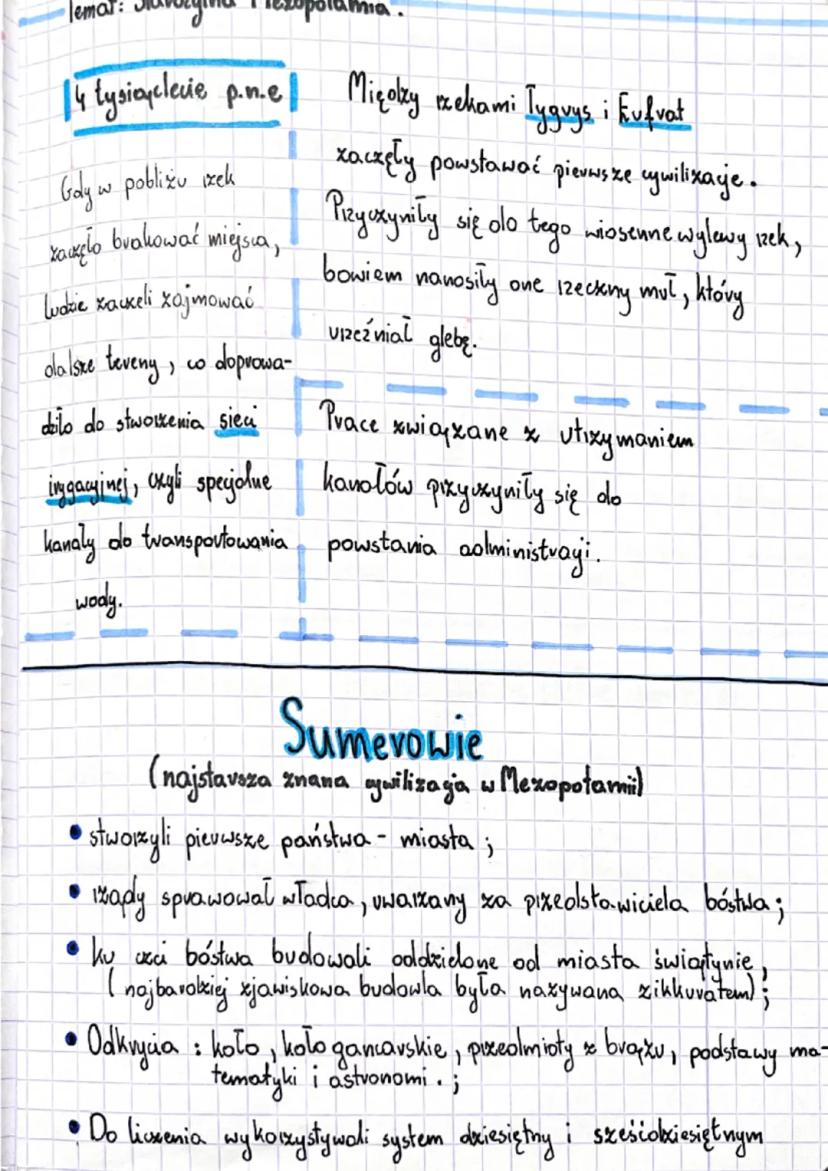 Temat: Starożytna Mezopotamia.
4 tysiąclecie p.n.e
Gdy w pobliżu rzek
zaczęło brakować miejsca,
ludzie zaczeli zajmować
dalsze tereny, co doprowa-
dziło do stworzenia sieci
irygacyjnej, czyli specjalne
kanały do transportowania
wody.
Między rzekami Tygrys i Eufrat
zaczęły powstawać pierwsze cywilizacje.
Przyczyniły się do tego wiosenne wylewy rzek,
bowiem nanosiły one rzeczny muł, który
urzeźniał glebę.
Prace związane z utrzymaniem
kanałów przyczyniły się do
powstania administracji.
Sumerowie
(najstarsza znana cywilizacja w Mezopotamii)
• stworzyli pierwsze państwa - miasta ;
• rządy sprawował władca, uwarzany za przedstawiciela bóstwa ;
• Ku czci bóstwa budowali oddzielone od miasta świątynie,
( najbardziej zjawiskowa budowla była nazywana zikkuratem) ;
• Odkrycia : koło, koło garncarskie, przedmioty z brązu, podstawy ma-
tematyki i astronomi . ;
• Do liczenia wykorzystywali system dziesiętny i sześćdziesiętnym